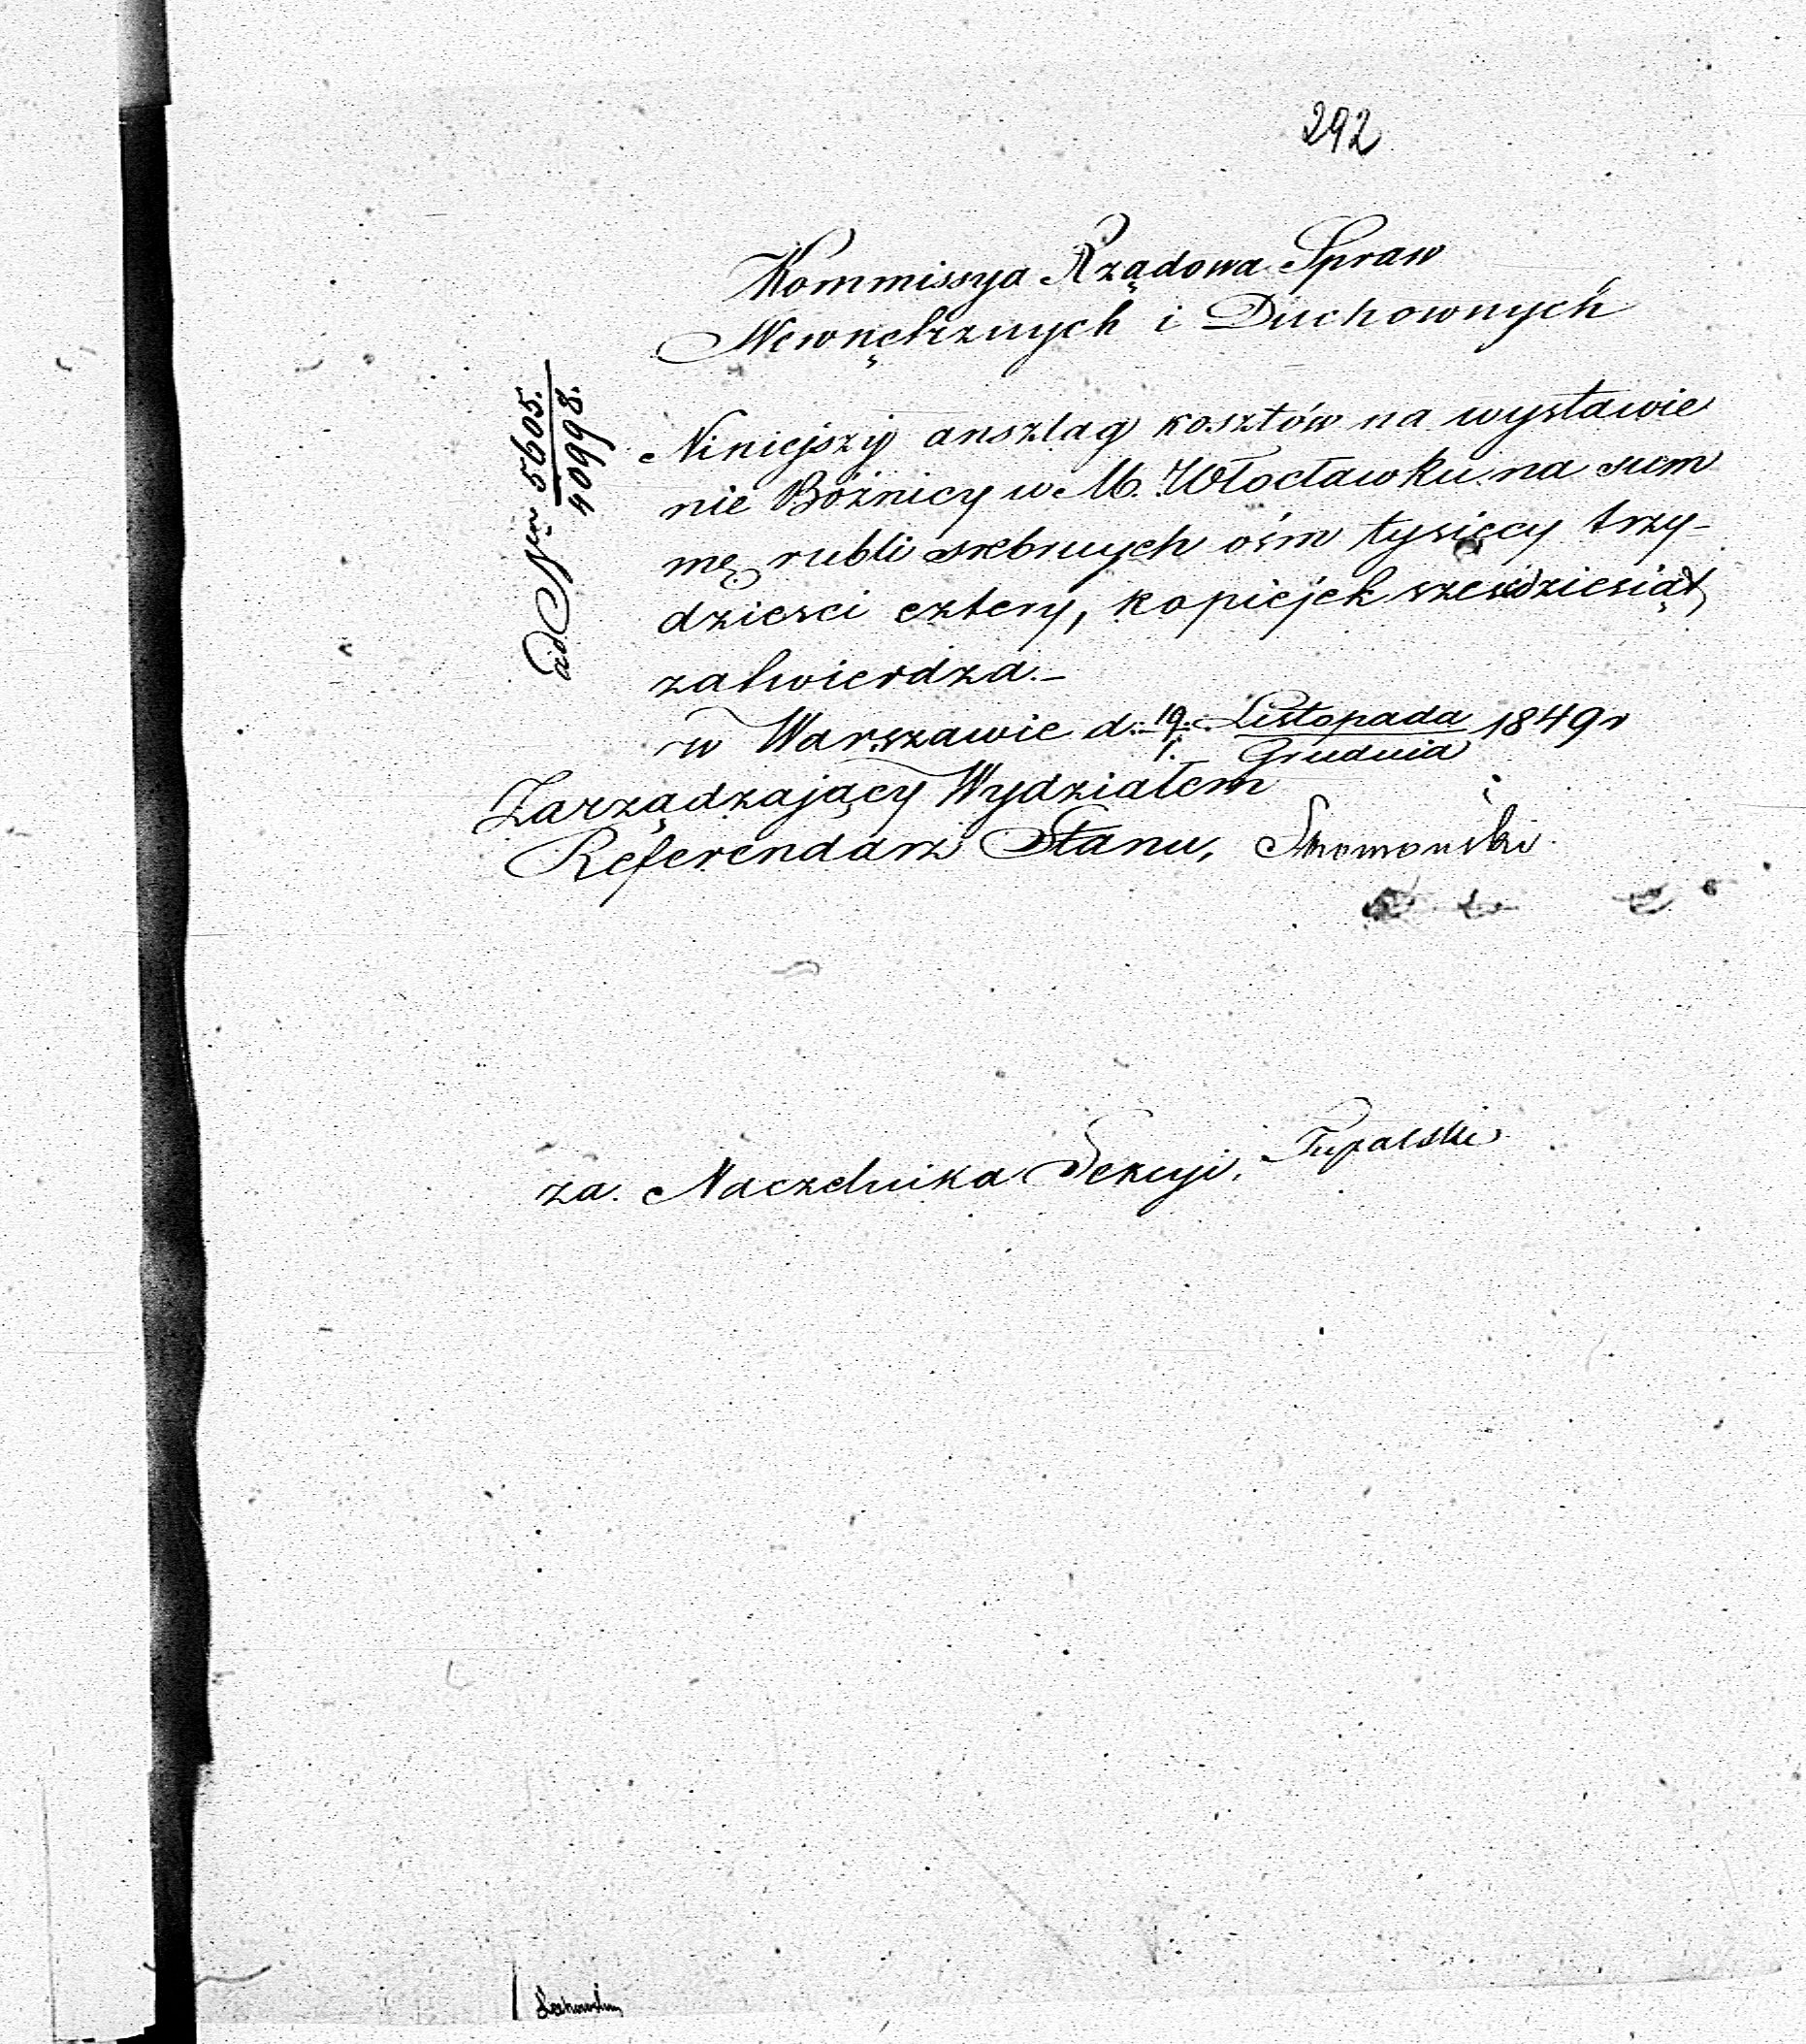 292
Kommissya Rządowa Spraw
Wewnętrznych i Duchownych
ad Nrm 5605.
40998.
Niniejszy anszlag kosztów na wystawie
nie Bóżnicy w M. Włocławku na sum
mę rubli srebrnych ośm tysięcy trzy-
dzieści cztery, kopiejek sześćdziesiąt,
zatwierdza.-
w Warszawie d. 19. Listopada 1849 r
1. Grudnia
Zarządzający Wydziałem
Referendarz Stanu,
za. Naczelnika Sekcyi,